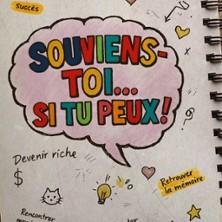 SUCCÈS
SOUVIENS-
TOI...
SI TU PEUX!
Devenir riche
$
Retrouver
la mémoire
Rencontrer